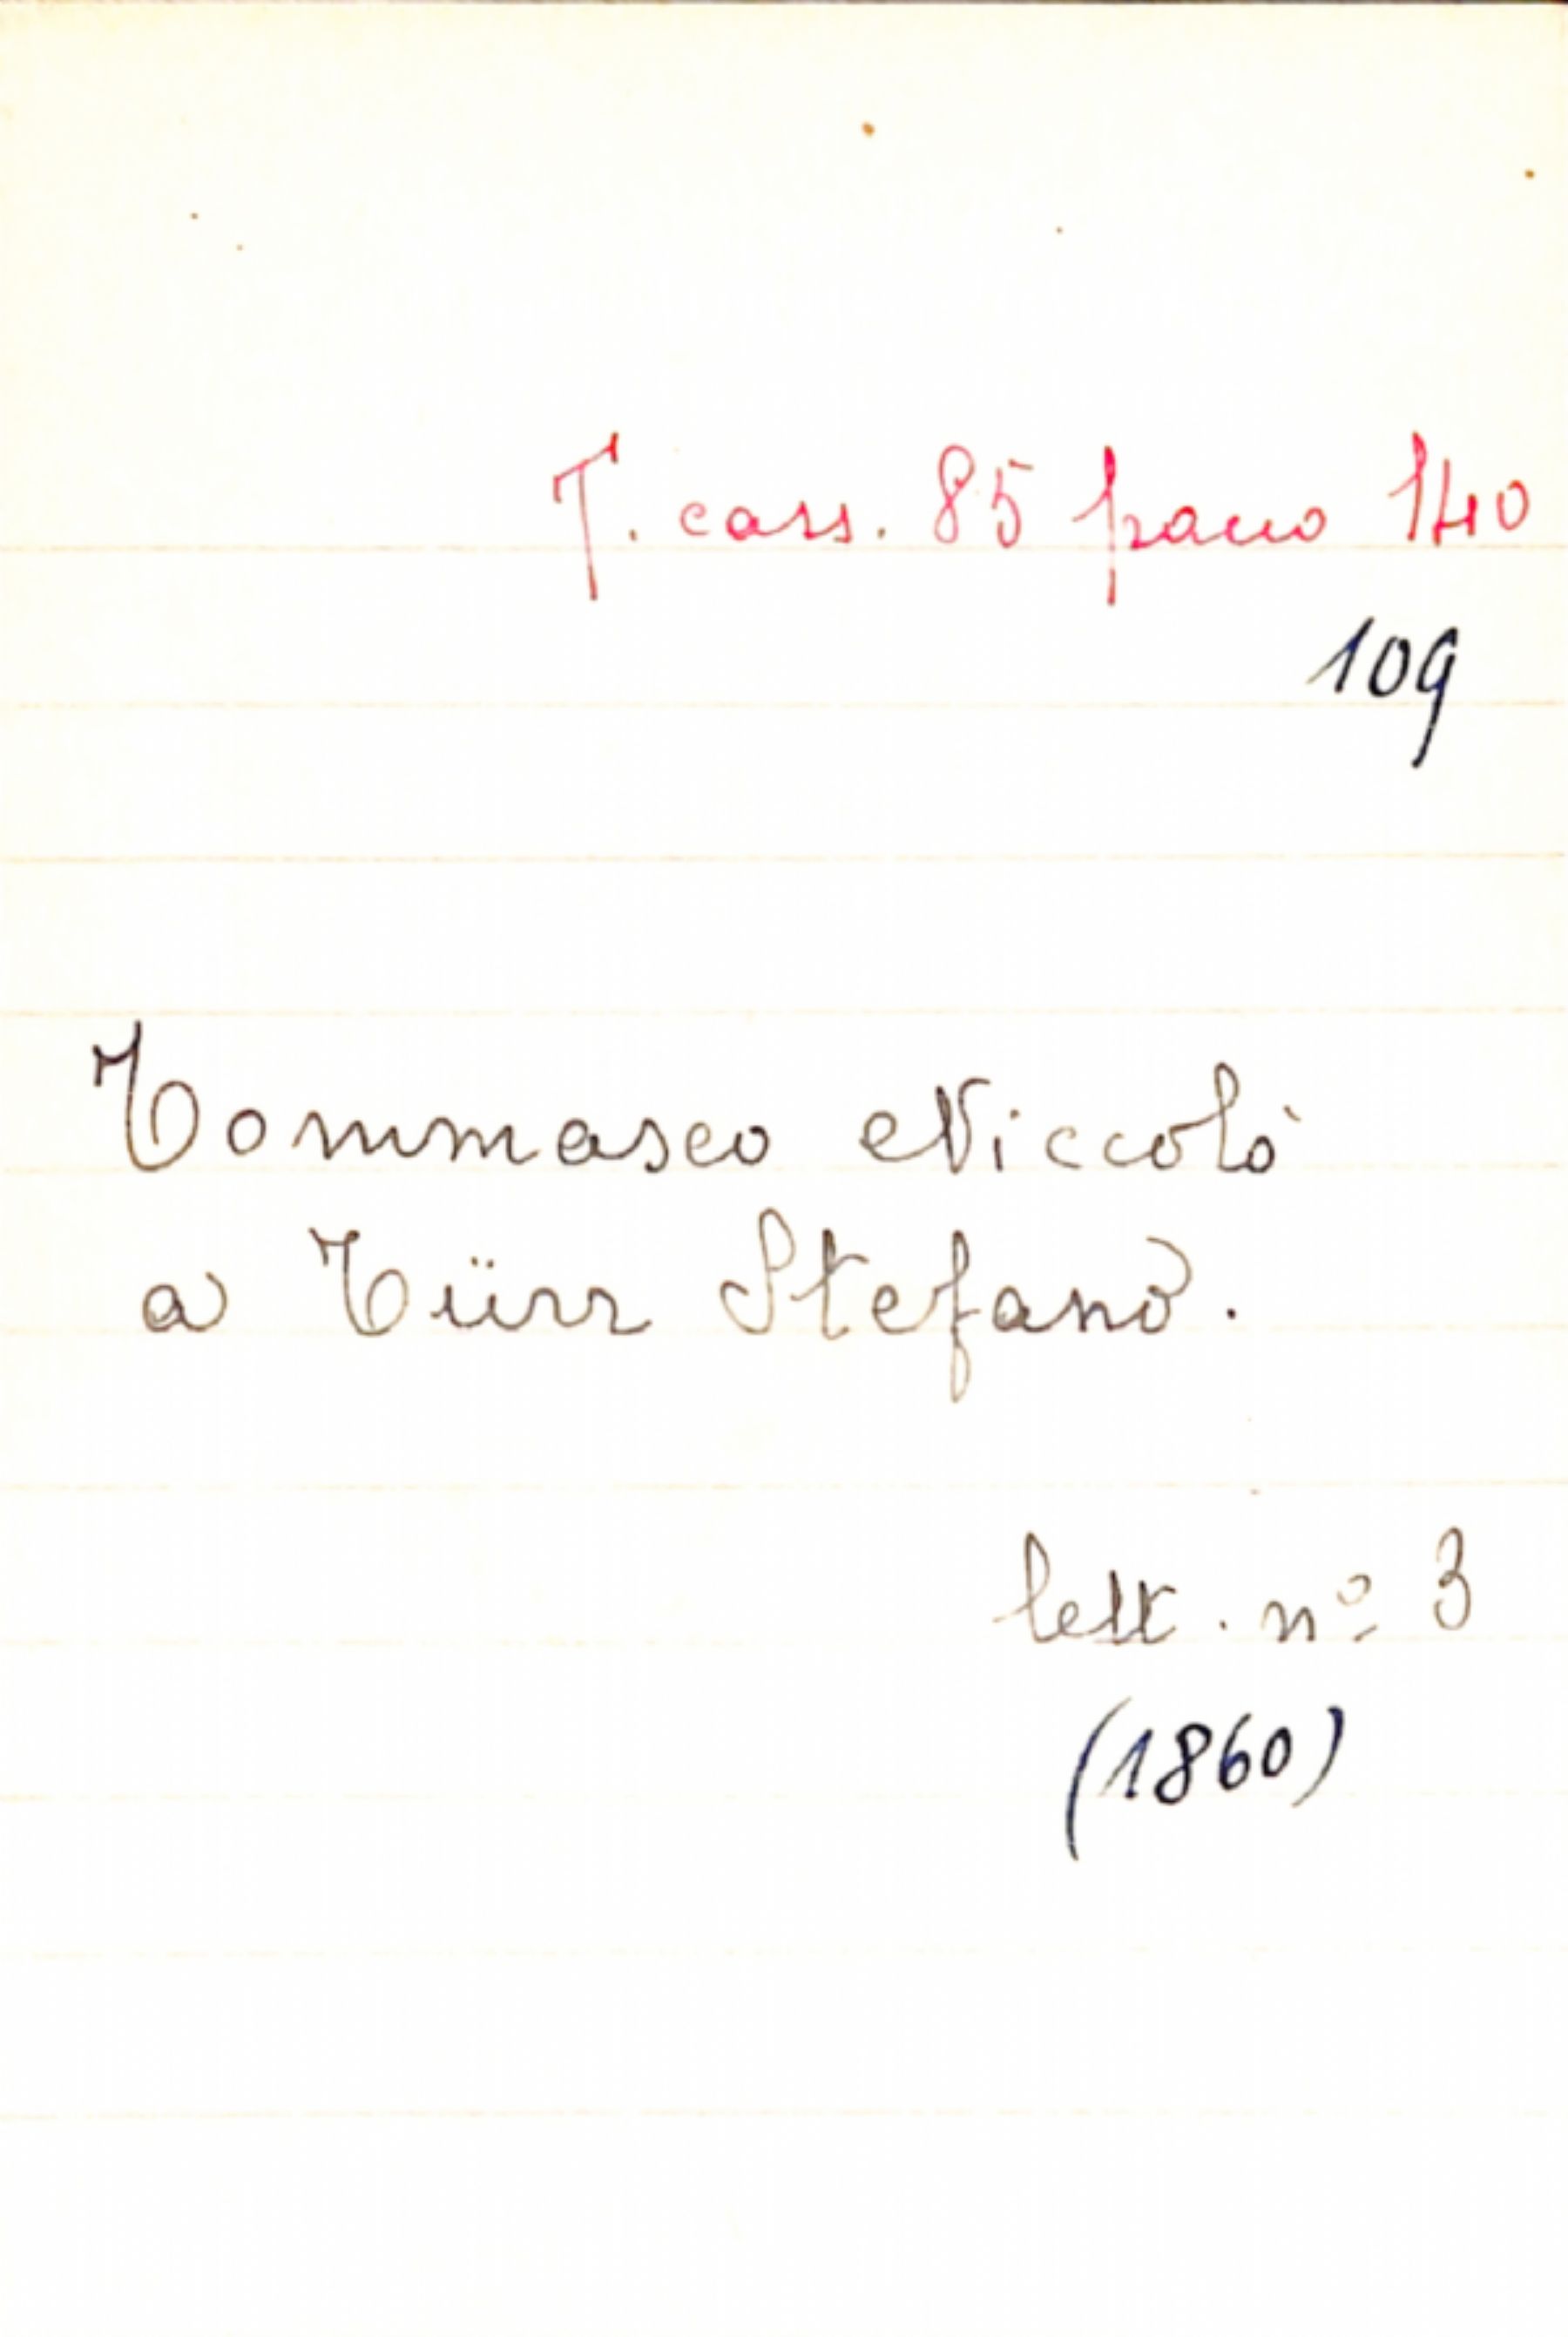 T. cass. 85 pacco 140
109
Tommaseo Niccolò
a Türr Stefano.
lett. nº 3
(1860)